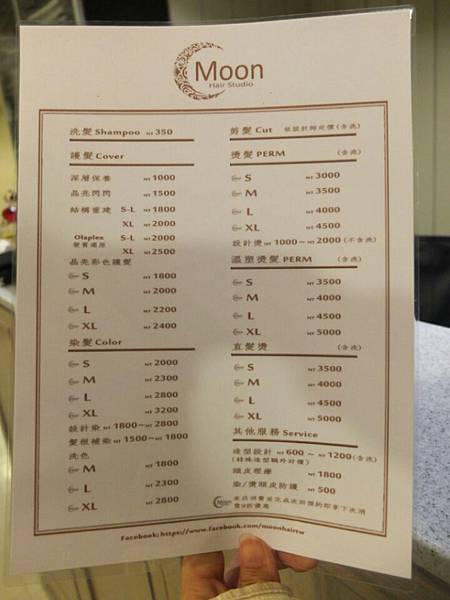 Moon
Hair Studio
洗髮 Shampoo NT 350
護髮 Cover
深層保養 NT 1000
晶亮閃閃 NT 1500
結構重建 S-L NT 1800
XL NT 2000
Olaplex S-L NT 2000
髮質還原 XL NT 2500
晶亮彩色護髮
S NT 1800
M NT 2000
L NT 2200
XL NT 2400
染髮 Color
S NT 2000
M NT 2300
L NT 2800
XL NT 3200
設計染 NT 1800~ NT 2800
髮根補染 NT 1500~ NT 1800
洗色
M NT 1800
L NT 2300
XL NT 2800
剪髮 Cut 依設計師定價(含洗)
燙髮 PERM (含洗)
S NT 3000
M NT 3500
L NT 4000
XL NT 4500
設計燙 NT 1000~ NT 2000 (不含洗)
溫塑燙髮 PERM (含洗)
S NT 3500
M NT 4000
L NT 4500
XL NT 5000
直髮燙 (含洗)
S NT 3500
M NT 4000
L NT 4500
XL NT 5000
其他服務 Service
造型設計 NT 600 ~ NT 1200(含洗)
(特殊造型額外計價)
頭皮理療 NT 1800
染/燙頭皮防護 NT 500
Moon 來店消費並完成次回預約即享下次消
費9折優惠
Facebook: https://www.facebook.com/moonhairtw